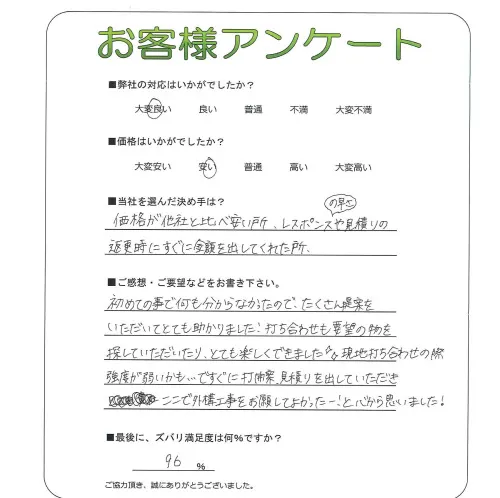 お客様アンケート
■弊社の対応はいかがでしたか？
大変良い 良い 普通 不満 大変不満
■価格はいかがでしたか？
大変安い 安い 普通 高い 大変高い
■当社を選んだ決め手は？
の早さ
価格が他社と比べ安い所、レスポンスや見積りの
返事時にすぐに金額を出してくれた所、
■ご感想・ご要望などをお書き下さい。
初めての事で何も分からなかったので、たくさん提案を
いただいてとても助かりました！打ち合わせも要望の物を
探していただいたり、とても楽しくできました 現地打ち合わせの際
強度が弱いかも…ですぐに打開案、見積りを出していただき
ここで外構工事をお願してよかったー！と心から思いました！
■最後に、ズバリ満足度は何％ですか？
96 ％
ご協力頂き、誠にありがとうございました。